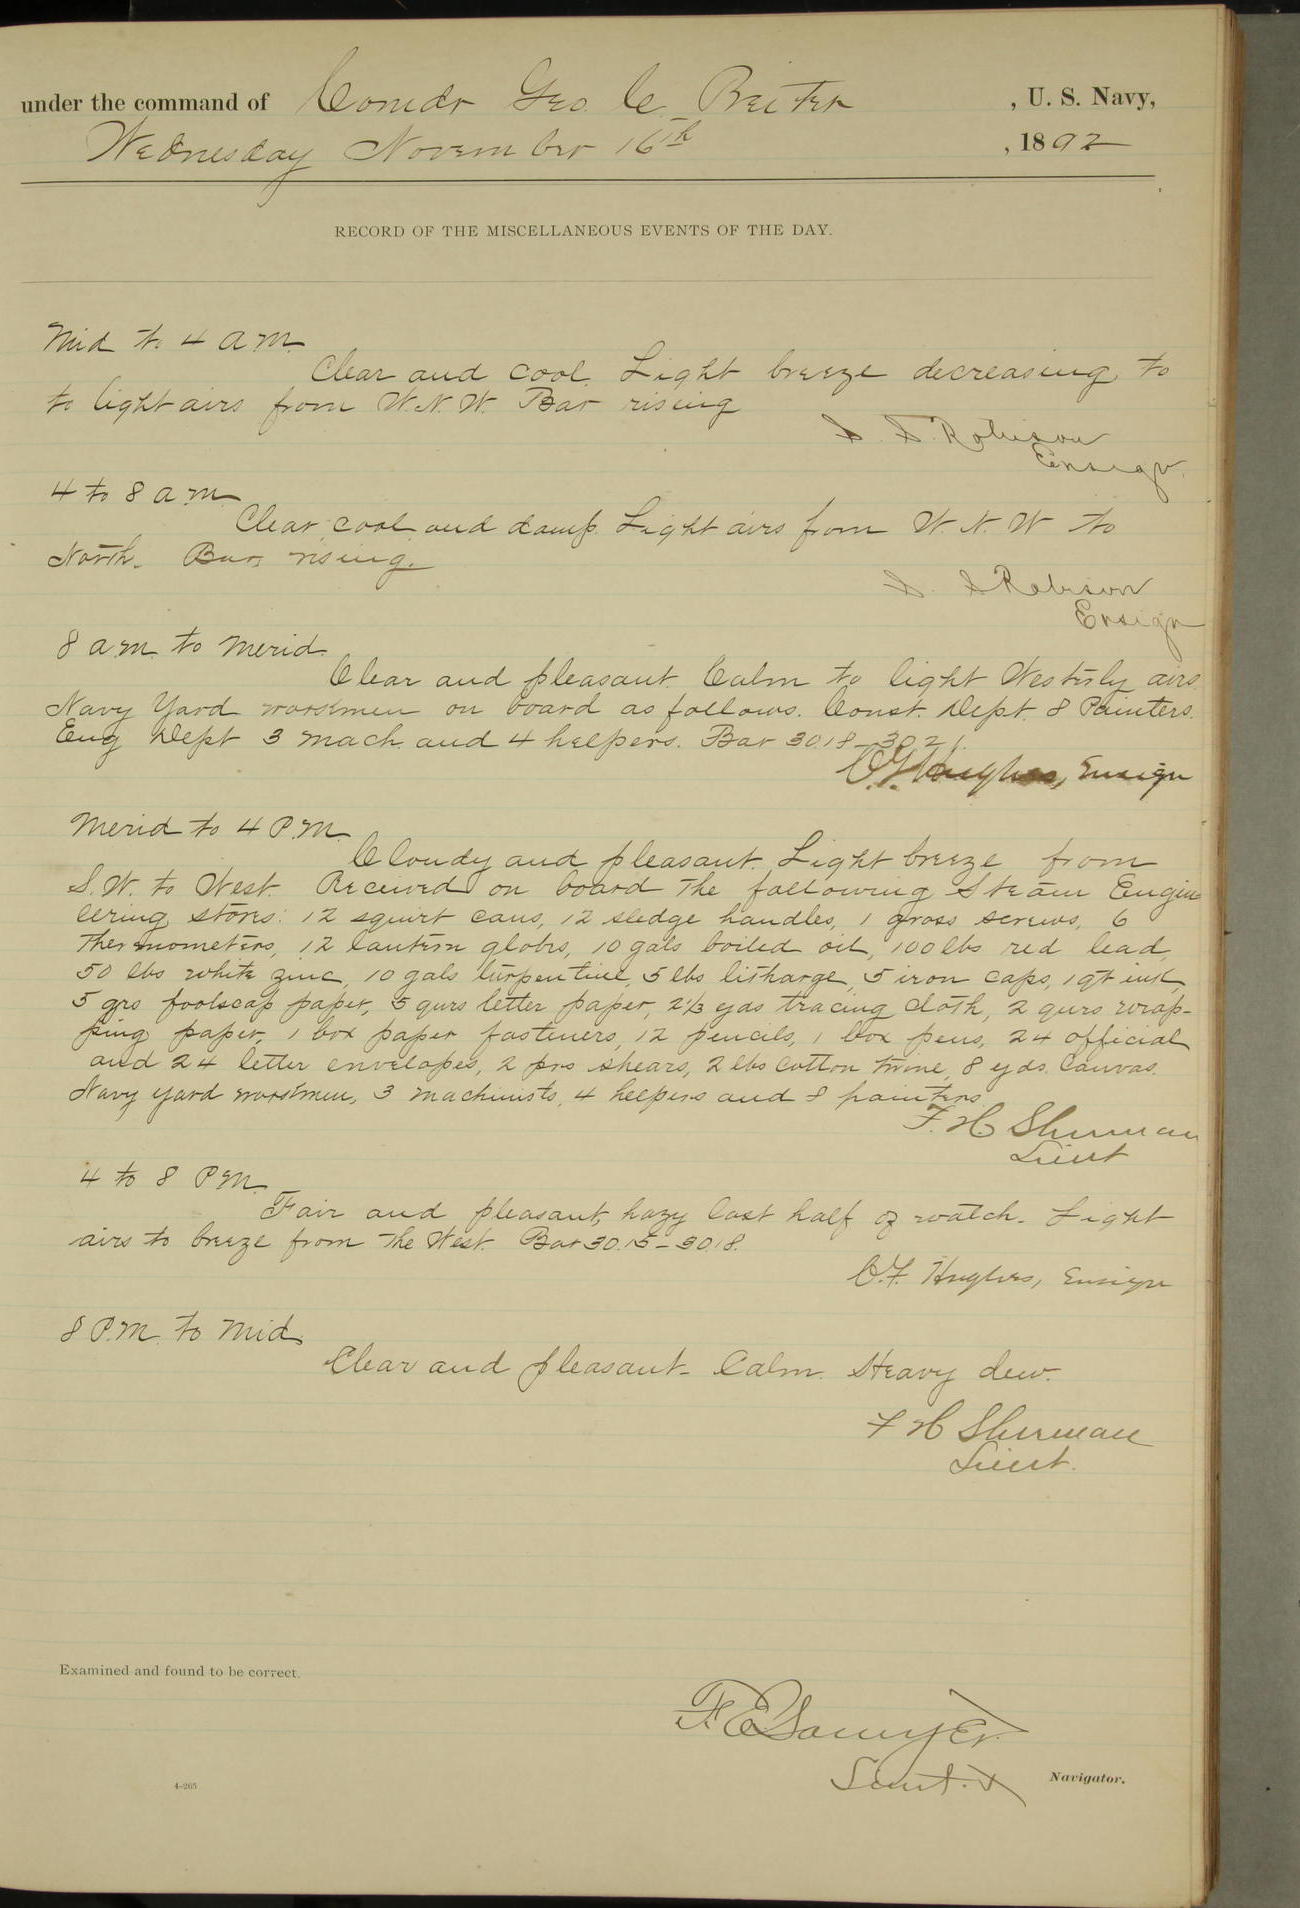 under the command of Comdr Geo. C. Reiter , U. S. Navy,
Wednesday November 16th , 1892
RECORD OF THE MISCELLANEOUS EVENTS OF THE DAY.
Mid to 4 a.m.
Clear and cool. Light breeze decreasing to
to light airs from W.N.W. Bar rising
S. S. Robison
Ensign.
4 to 8 a.m.
Clear, cool and damp. Light airs from W.N.W to
North. Bar. rising.
S. S Robison
Ensign
8 a.m. to Merid.
Clear and pleasant. Calm to light Westerly airs
Navy Yard workmen on board as follows. Const. Dept. 8 Painters.
Eng Dept 3 Mach. and 4 helpers. Bar 30.18-30.21.
C.F. Hughes, Ensign
Merid to 4 P.M.
Cloudy and pleasant. Light breeze from
S.W. to West. Received on board the following Steam Engin
eering stores: 12 squirt cans, 12 sledge handles, 1 gross screws, 6
thermometers, 12 lantern globes, 10 gals boiled oil, 100 lbs red lead,
50 lbs white zinc, 10 gals turpentine, 5 lbs litharge, 5 iron caps, 1 qt ink,
5 qrs foolscap paper, 5 qurs letter paper, 2⅓ yds tracing cloth, 2 qurs wrap-
ping paper, 1 box paper fasteners, 12 pencils, 1 box pens, 24 official
and 24 letter envelopes, 2 prs shears, 2 lbs cotton twine, 8 yds. Canvas.
Navy yard workmen, 3 machinists, 4 helpers and 8 painters
F. H. Sherman
Lieut
4 to 8 P.M.
Fair and pleasant, hazy last half of watch. Light
airs to breeze from the West. Bar 30.15-30.18.
C.F. Hughes, Ensign
8 P.M. to Mid.
Clear and pleasant. Calm. Heavy dew.
F H Sherman
Lieut.
Examined and found to be correct.
F. E. Sawyer.
Lieut. &
4-265 Navigator.